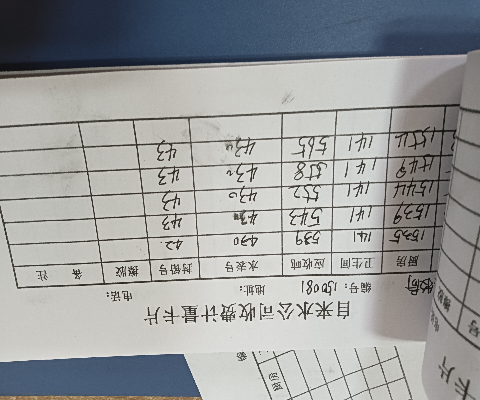 自来水公司收费计量卡片
编号: 150081 地址: 电话:
厨房 卫生间 应收吨 水表号 封铅号 备注
1535 141 539 430 42
1539 141 543 43
1544 141 552 430 43
1549 141 558 430 43
1554 141 565 430 43